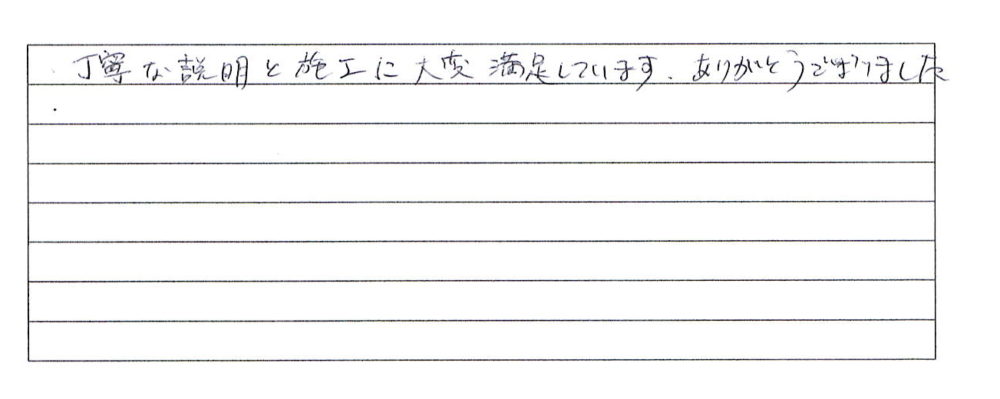 丁寧な説明と施工に大変満足しています。ありがとうございました
.